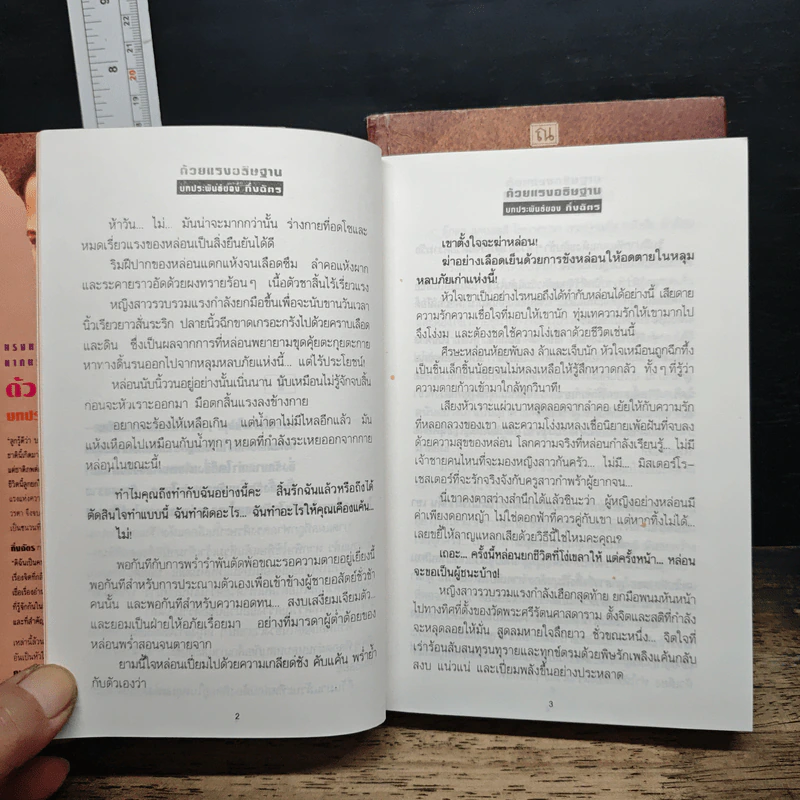 ด้วยแรงอธิษฐาน
บทประพันธ์ของ กิ่งฉัตร
ห้าวัน... ไม่... มันน่าจะมากกว่านั้น ร่างกายที่อดโซและ
หมดเรี่ยวแรงของหล่อนเป็นสิ่งยืนยันได้ดี
ริมฝีปากของหล่อนแตกแห้งจนเลือดซึม ลำคอแห้งผาก
และระคายราวอัดด้วยผงทรายร้อนๆ เนื้อตัวชาสิ้นไร้เรี่ยวแรง
หญิงสาวรวบรวมแรงกำลังยกมือขึ้นเพื่อจะนับขานวันเวลา
นิ้วเรียวยาวสั่นระริก ปลายนิ้วฉีกขาดเกรอะกรังไปด้วยคราบเลือด
และดิน ซึ่งเป็นผลจากการที่หล่อนพยายามขุดคุ้ยตะกุยตะกาย
หาทางดิ้นรนออกไปจากหลุมหลบภัยแห่งนี้... แต่ไร้ประโยชน์!
หล่อนนับนิ้ววนอยู่อย่างนั้นเนิ่นนาน นับเหมือนไม่รู้จักจบสิ้น
ก่อนจะหัวเราะออกมา มือตกสิ้นแรงลงข้างกาย
อยากจะร้องไห้เหลือเกิน แต่น้ำตาไม่มีไหลอีกแล้ว มัน
แห้งเหือดไปเหมือนกับน้ำทุกๆ หยดที่กำลังระเหยออกจากกาย
หล่อนในขณะนี้!
ทำไมคุณถึงทำกับฉันอย่างนี้คะ สิ้นรักฉันแล้วหรือถึงได้
ตัดสินใจทำแบบนี้ ฉันทำผิดอะไร... ฉันทำอะไรให้คุณเคืองแค้น...
ไม่!
พอกันทีกับการพร่ำรำพันตัดพ้อขณะรอความตายอยู่เยี่ยงนี้
พอกันทีสำหรับการประณามตัวเองเพื่อเข้าข้างผู้ชายอสัตย์ชั่วช้า
คนนั้น และพอกันทีสำหรับความอดทน... สงบเสงี่ยมเจียมตัว...
และยอมเป็นฝ่ายให้อภัยเรื่อยมา อย่างที่มารดาผู้ต่ำต้อยของ
หล่อนพร่ำสอนจนตายจาก
ยามนี้ใจหล่อนเปี่ยมไปด้วยความเกลียดชัง คับแค้น พร่ำย้ำ
กับตัวเองว่า
2
ด้วยแรงอธิษฐาน
บทประพันธ์ของ กิ่งฉัตร
เขาตั้งใจจะฆ่าหล่อน!
ฆ่าอย่างเลือดเย็นด้วยการขังหล่อนให้อดตายในหลุม
หลบภัยเก่าแห่งนี้!
หัวใจเขาเป็นอย่างไรหนอถึงได้ทำกับหล่อนได้อย่างนี้ เสียดาย
ความรักความเชื่อใจที่มอบให้เขานัก ทุ่มเทความรักให้เขามากไป
จึงโง่งม และต้องชดใช้ความโง่เขลาด้วยชีวิตเช่นนี้
ศีรษะหล่อนห้อยพับลง ล้าและเจ็บนัก หัวใจเหมือนถูกฉีกทึ้ง
เป็นชิ้นเล็กชิ้นน้อยจนไม่หลงเหลือให้รู้สึกหวาดกลัว ทั้งๆ ที่รู้ว่า
ความตายก้าวเข้ามาใกล้ทุกวินาที!
เสียงหัวเราะแผ่วเบาหลุดลอดจากลำคอ เย้ยให้กับความรัก
ที่หลอกลวงของเขา และความโง่งมหลงเชื่อนิยายเพ้อฝันที่จบลง
ด้วยความสุขของหล่อน โลกความจริงที่หล่อนกำลังเรียนรู้... ไม่มี
เจ้าชายคนไหนที่จะมองหญิงสาวก้นครัว... ไม่มี... มิสเตอร์โร-
เชสเตอร์ที่จะรักจริงจังกับครูสาวกำพร้าผู้ยากจน...
นี่เขาคงตาสว่างสำนึกได้แล้วซินะว่า ผู้หญิงอย่างหล่อนมี
ค่าเพียงดอกหญ้า ไม่ใช่ดอกฟ้าที่ควรคู่กับเขา แต่หากทิ้งไม่ได้...
เลยขยี้ให้ลาญแหลกเสียด้วยวิธีนี้ใช่ไหมคะคุณ?
เถอะ... ครั้งนี้หล่อนยกชีวิตที่โง่เขลาให้ แต่ครั้งหน้า... หล่อน
จะขอเป็นผู้ชนะบ้าง!
หญิงสาวรวบรวมแรงกำลังเฮือกสุดท้าย ยกมือพนมหันหน้า
ไปทางทิศที่ตั้งของวัดพระศรีรัตนศาสดาราม ตั้งจิตและสติที่กำลัง
จะหลุดลอยให้มั่น สูดลมหายใจลึกยาว ชั่วขณะหนึ่ง... จิตใจที่
เร่าร้อนสับสนทุรนทุรายและทุกข์ตรมด้วยพิษรักเพลิงแค้นกลับ
สงบ แน่วแน่ และเปี่ยมพลังขึ้นอย่างประหลาด
3